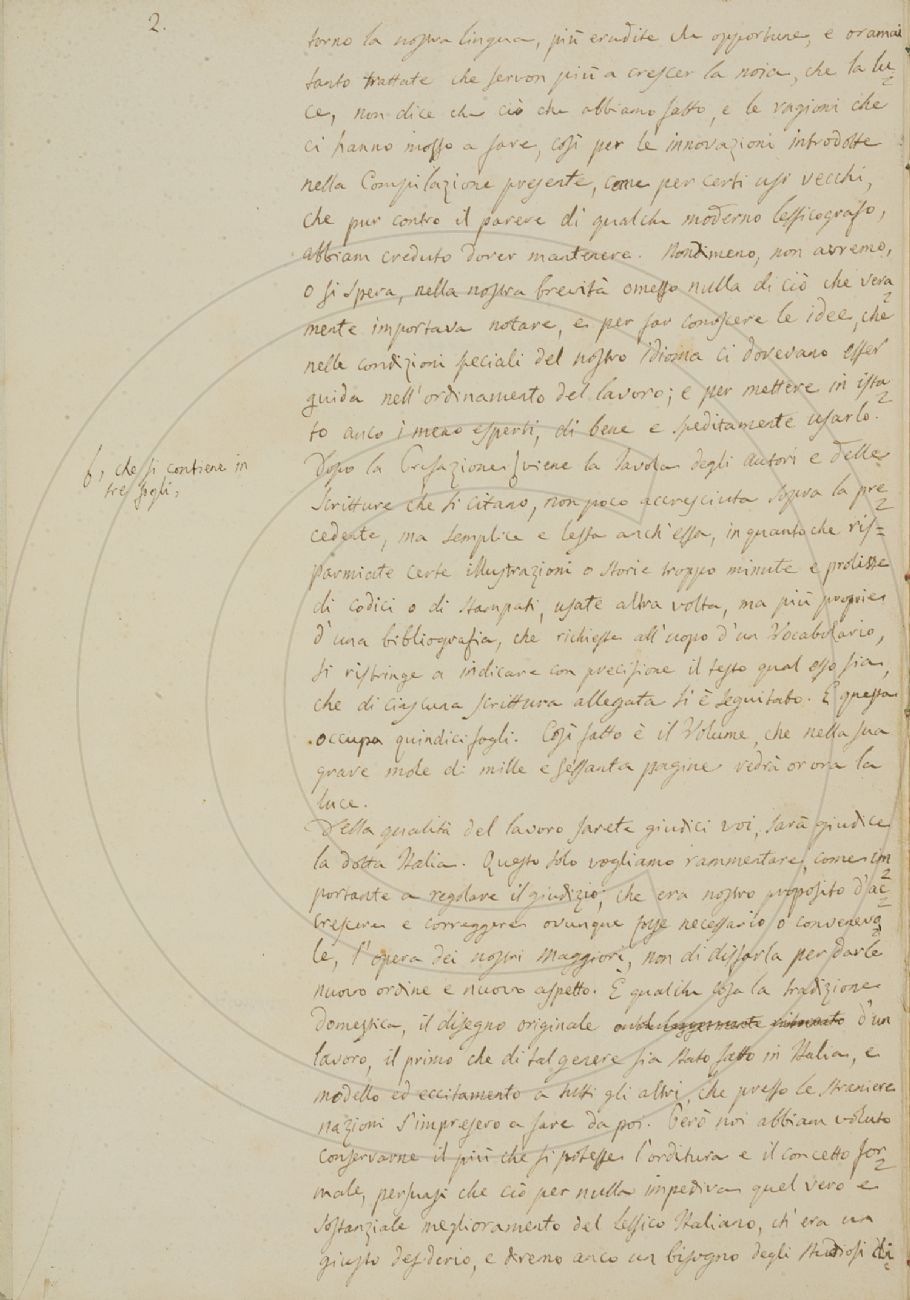 2.
torno la nostra lingua, più erudite che opportune, e oramai
tanto trattate che servon più a crescer la noia, che la lu-
ce, non dice che ciò che abbiamo fatto, e le ragioni che
ci hanno mosso a fare, così per le innovazioni introdotte
nella Compilazione presente, come per certi usi vecchi,
che pur contro il parere di qualche moderno lessicografo,
abbiam creduto dover mantenere. Nondimeno, non avremo,
o si spera, nella nostra brevità omesso nulla di ciò che vera-
mente importava notare, e per far conoscere le idee, che
nelle condizioni speciali del nostro idioma ci dovevano esser
guida nell'ordinamento del lavoro; e per mettere in ista-
to anco i meno esperti, di bene e speditamente usarlo.
Dopo la Prefazione viene la Tavola degli autori e delle
f, che si contiene in
tre fogli,
Scritture che si citano, non poco accresciuta sopra la pre-
cedente, ma semplice e lesta anch'essa, in quanto che ris=
parmiate certe illustrazioni o storie troppo minute e prolisse
di codici o di stampati, usate altra volta, ma più proprie
d'una bibliografia, che richieste all'uopo d'un Vocabolario,
si ristringe a indicare con precisione il testo qual esso sia,
che di ciascuna scrittura allegata si è seguitato. E questa
occupa quindici fogli. Così fatto è il Volume, che nella sua
grave mole di mille e sessanta pagine vedrà or ora la
luce.
Della qualità del lavoro sarete giudici voi, sarà giudice
la dotta Italia. Questo solo vogliamo rammentare, come im-
portante a regolare il giudizio, che era nostro proposito d'ac-
crescere e correggere ovunque fosse necessario o convenevo-
le, l'opera dei nostri Maggiori, non di disfarla per darle
nuovo ordine e nuovo aspetto. È qualche cosa la tradizione
domestica, il disegno originale d'un
lavoro, il primo che di tal genere sia stato fatto in Italia, e
modello ed eccitamento a tutti gli altri, che presso le straniere
nazioni s'impresero a fare da poi. Però noi abbiam voluto
conservarne il più che si potesse l'orditura e il concetto for-
male, persuasi che ciò per nulla impediva quel vero e
sostanziale meglioramento del Lessico Italiano, ch'era un
giusto desiderio, e diremo anco un bisogno degli studiosi di-